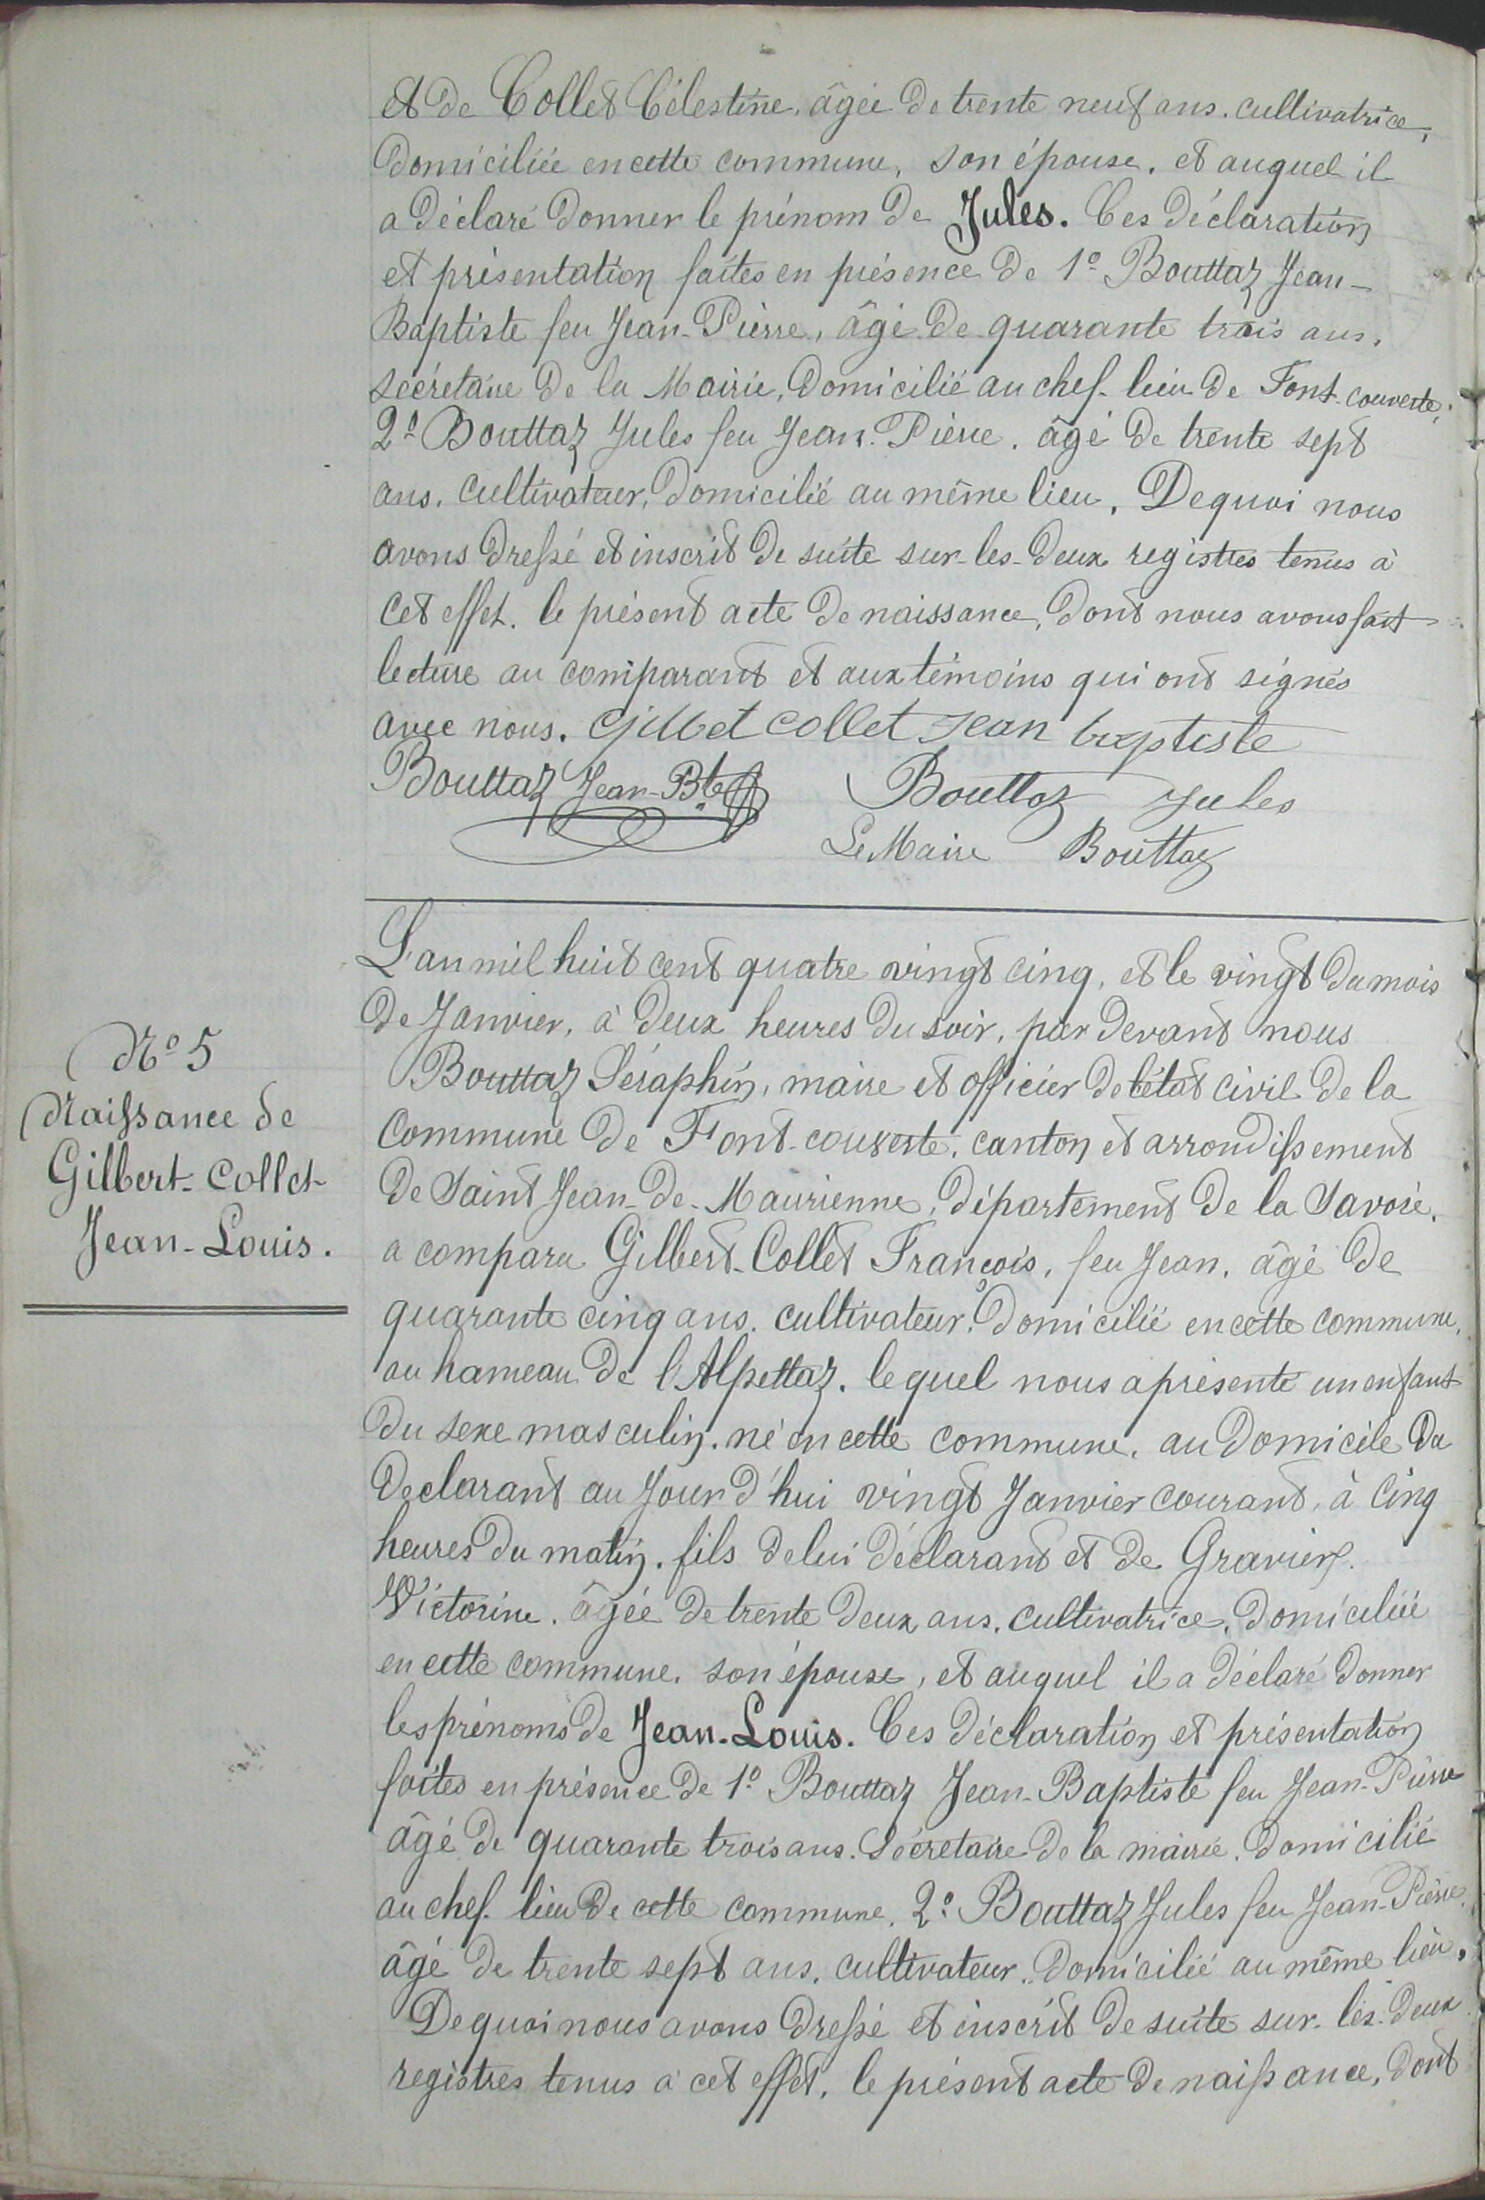 et de Collet Célestine, âgée de trente neuf ans. cultivatrice,
domiciliée en cette commune, son épouse. et auquel il
a déclaré donner le prénom de Jules. Ces déclaration
et présentation faites en présence de 1º Bouttaz Jean-
Baptiste feu Jean-Pierre, âgé de quarante trois ans.
secrétaire de la Mairie, domicilié au chef-lieu de Font-couverte,
2º Bouttaz Jules feu Jean-Pierre. âgé de trente sept
ans. cultivateur, domicilié au même lieu. De quoi nous
avons dressé et inscrit de suite sur-les-deux registres tenus à
cet effet. le présent acte de naissance, dont nous avons fait
lecture au comparant et aux témoins qui ont signés
avec nous. Gilbet collet Jean baptiste
Bouttaz Jean-Bte Bouttaz Jules
Le Maire Bouttaz
L'an mil huit cent quatre vingt cinq, et le vingt du mois
de Janvier, à deux heures du soir, par devant nous
Bouttaz Séraphin, maire et officier de l'état civil de la
Commune de Font-couverte, canton et arrondissement
de Saint Jean-de-Maurienne, département de la Savoie.
a comparu Gilbert-Collet François, feu Jean, âgé de
quarante cinq ans. cultivateur, domicilié en cette commune,
au hameau de l'Alpettaz. lequel nous a présenté un enfant
du sexe masculin. né en cette commune, au domicile du
déclarant au Jour d'hui vingt Janvier courant, à Cinq
heures du matin. fils de lui déclarant et de Gravier
Victorine. âgée de trente deux ans. cultivatrice, domiciliée
en cette commune. son épouse, et auquel il a déclaré donner
les prénoms de Jean-Louis. Ces déclaration et présentation
faites en présence de 1º Bouttaz Jean-Baptiste feu Jean-Pierre
âgé de quarante trois ans. Secrétaire de la mairie. domicilié
au chef-lieu de cette commune. 2º Bouttaz Jules feu Jean-Pierre,
âgé de trente sept ans. cultivateur. domicilié au même lieu.
De quoi nous avons dressé et inscrit de suite sur-les-deux
registres tenus à cet effet, le présent acte de naissance, dont
Nº 5
Naissance de
Gilbert-Collet-
Jean-Louis.